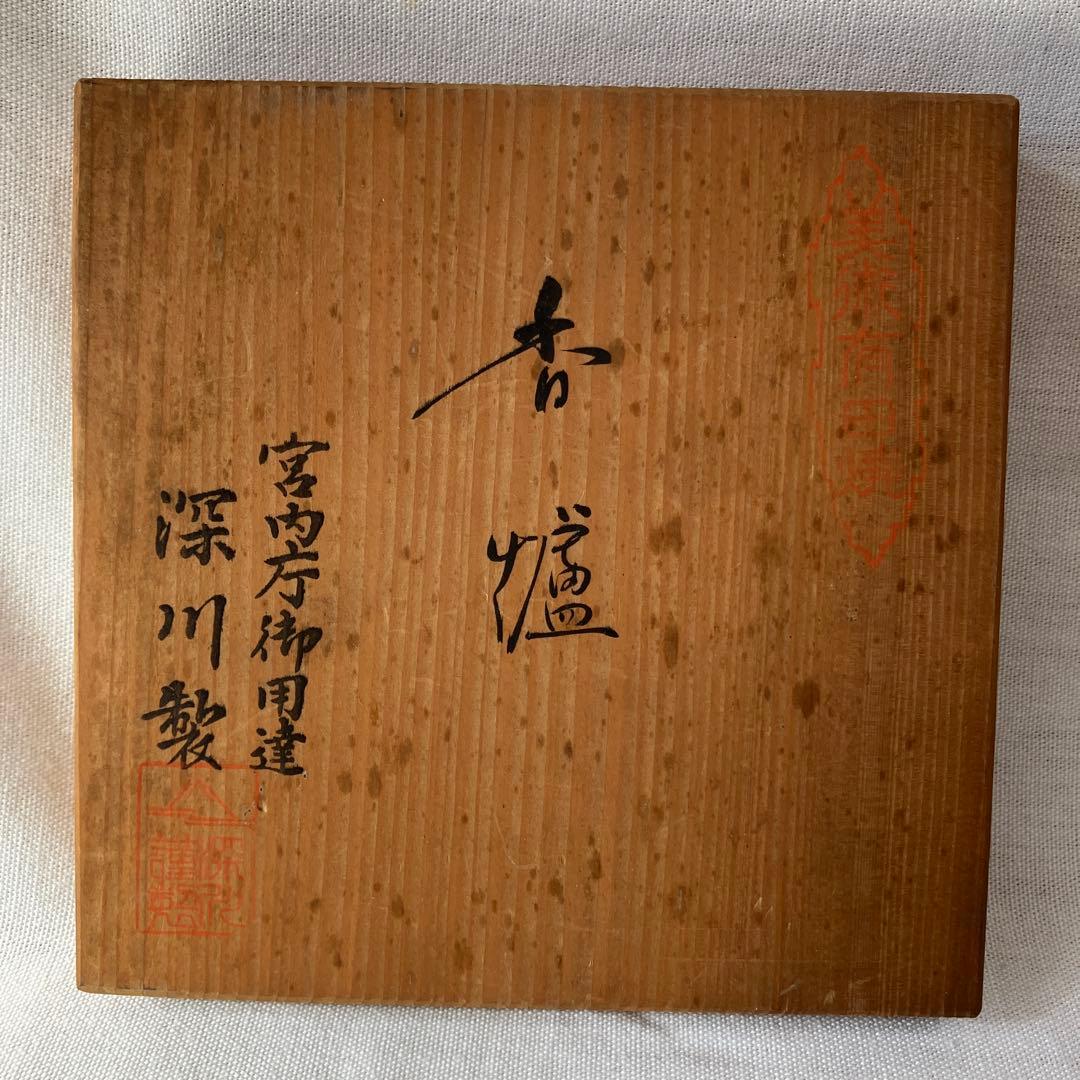 美術有田焼
香爐
宮内庁御用達
深川製
深川
謹製